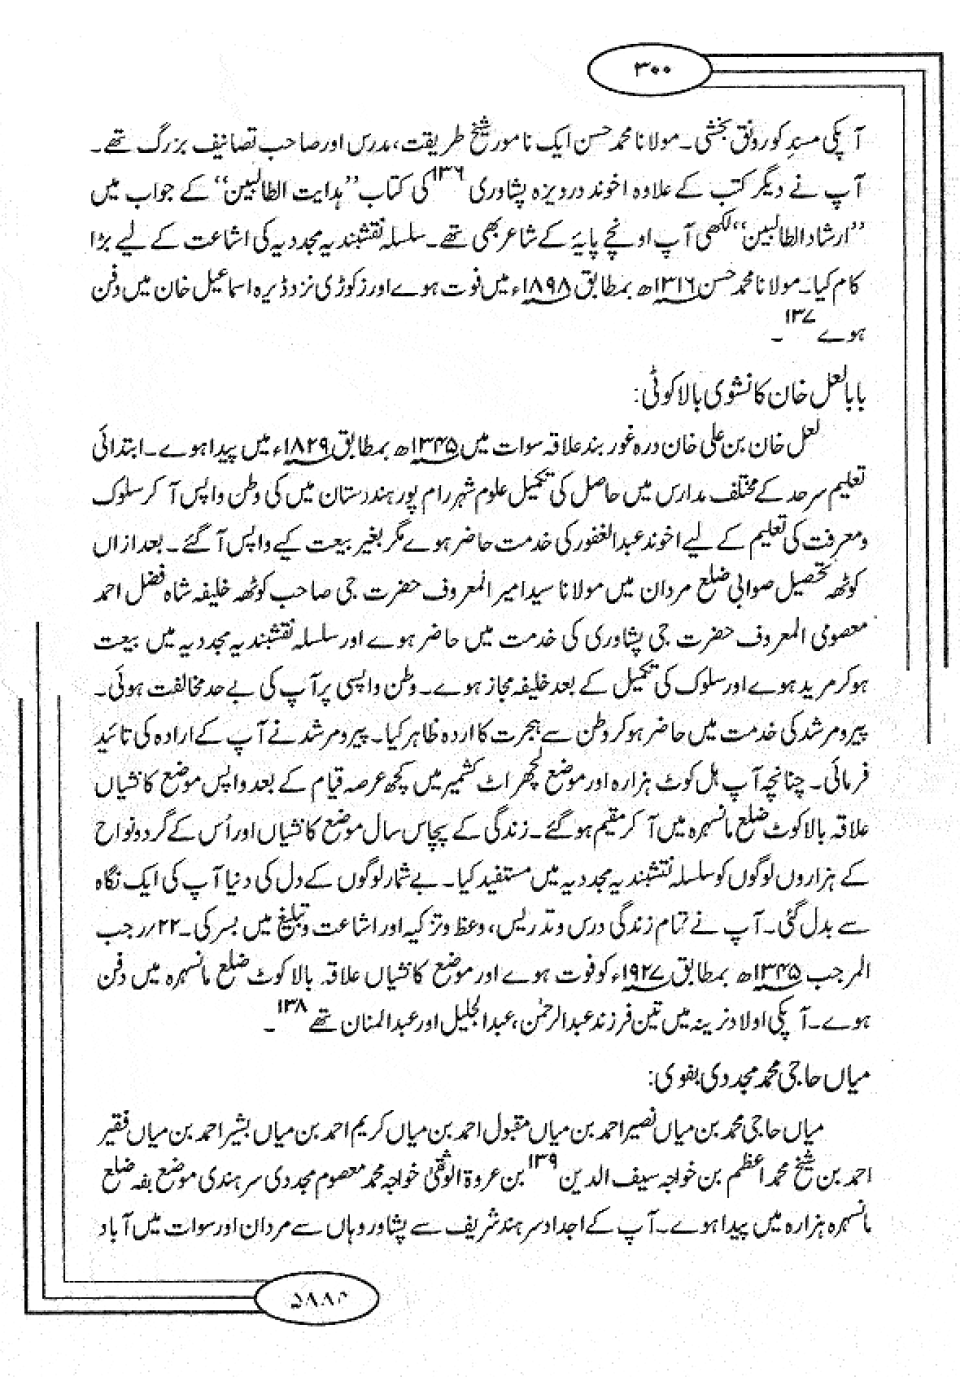 ۳۰۰
آپکی مسندِ کو رونق بخشی۔ مولانا محمد حسن ایک نامور شیخ طریقت، مدرس اور صاحب تصانیف بزرگ تھے۔
آپ نے دیگر کتب کے علاوہ اخوند درویزہ پشاوری ۱۳۶ کی کتاب ”ہدایت الطالبین“ کے جواب میں
”ارشاد الطالبین“ لکھی آپ اونچے پایۂ کے شاعر بھی تھے۔ سلسلہ نقشبندیہ مجددیہ کی اشاعت کے لیے بڑا
کام کیا۔ مولانا محمد حسن ۱۳۱۶ھ بمطابق ۱۸۹۸ء میں فوت ہوے اور زکوڑی نزد ڈیرہ اسماعیل خان میں دفن
ہوے ۱۳۷۔
بابا لعل خان کانشوی بالاکوٹی:
لعل خان بن علی خان درہ غوربند علاقہ سوات میں ۱۳۴۵ھ بمطابق ۱۸۲۹ء میں پیدا ہوے۔ ابتدائی
تعلیم سرحد کے مختلف مدارس میں حاصل کی تکمیل علوم شہر رام پور ہندرستان میں کی وطن واپس آ کر سلوک
و معرفت کی تعلیم کے لیے اخوند عبدالغفور کی خدمت حاضر ہوے مگر بغیر بیعت کیے واپس آ گئے۔ بعد ازاں
کوٹھہ تحصیل صوابی ضلع مردان میں مولانا سید امیر المعروف حضرت جی صاحب کوٹھہ خلیفہ شاہ فضل احمد
معصومی المعروف حضرت جی پشاوری کی خدمت میں حاضر ہوے اور سلسلہ نقشبندیہ مجددیہ میں بیعت
ہو کر مرید ہوے اور سلوک کی تکمیل کے بعد خلیفہ مجاز ہوے۔ وطن واپسی پر آپ کی بے حد مخالفت ہوئی۔
پیرومرشد کی خدمت میں حاضر ہو کر وطن سے ہجرت کا اردہ ظاہر کیا۔ پیرومرشد نے آپ کے ارادہ کی تائید
فرمائی۔ چنانچہ آپ ہل کوٹ ہزارہ اور موضع لچھراٹ کشمیر میں کچھ عرصہ قیام کے بعد واپس موضع کانشیاں
علاقہ بالاکوٹ ضلع مانسہرہ میں آ کر مقیم ہو گئے۔ زندگی کے پچاس سال موضع کانشیاں اور اُس کے گردونواح
کے ہزاروں لوگوں کو سلسلہ نقشبندیہ مجددیہ میں مستفید کیا۔ بے شمار لوگوں کے دل کی دنیا آپ کی ایک نگاہ
سے بدل گئی۔ آپ نے تمام زندگی درس و تدریس، وعظ و تزکیہ اور اشاعت و تبلیغ میں بسر کی۔ ۲۲؍رجب
المرجب ۱۳۴۵ھ بمطابق ۱۹۲۷ء کو فوت ہوے اور موضع کانشیاں علاقہ بالاکوٹ ضلع مانسہرہ میں دفن
ہوے۔ آپکی اولاد نرینہ میں تین فرزند عبدالرحمٰن، عبدالجلیل اور عبدالمنان تھے ۱۳۸۔
میاں حاجی محمد مجددی بفوی:
میاں حاجی محمد بن میاں نصیر احمد بن میاں مقبول احمد بن میاں کریم احمد بن میاں بشیر احمد بن میاں فقیر
احمد بن شیخ محمد اعظم بن خواجہ سیف الدین ۱۳۹ بن عروۃ الوثقیٰ خواجہ محمد معصوم مجددی سرہندی موضع بفہ ضلع
مانسہرہ ہزارہ میں پیدا ہوے۔ آپ کے اجداد سرہند شریف سے پشاور وہاں سے مردان اور سوات میں آباد